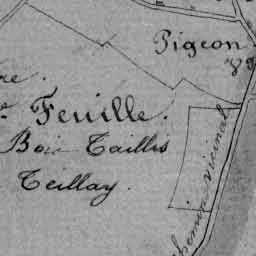 Pigeon
re.
Feuille.
Bois Taillis
Teillay.
chemin vicinal